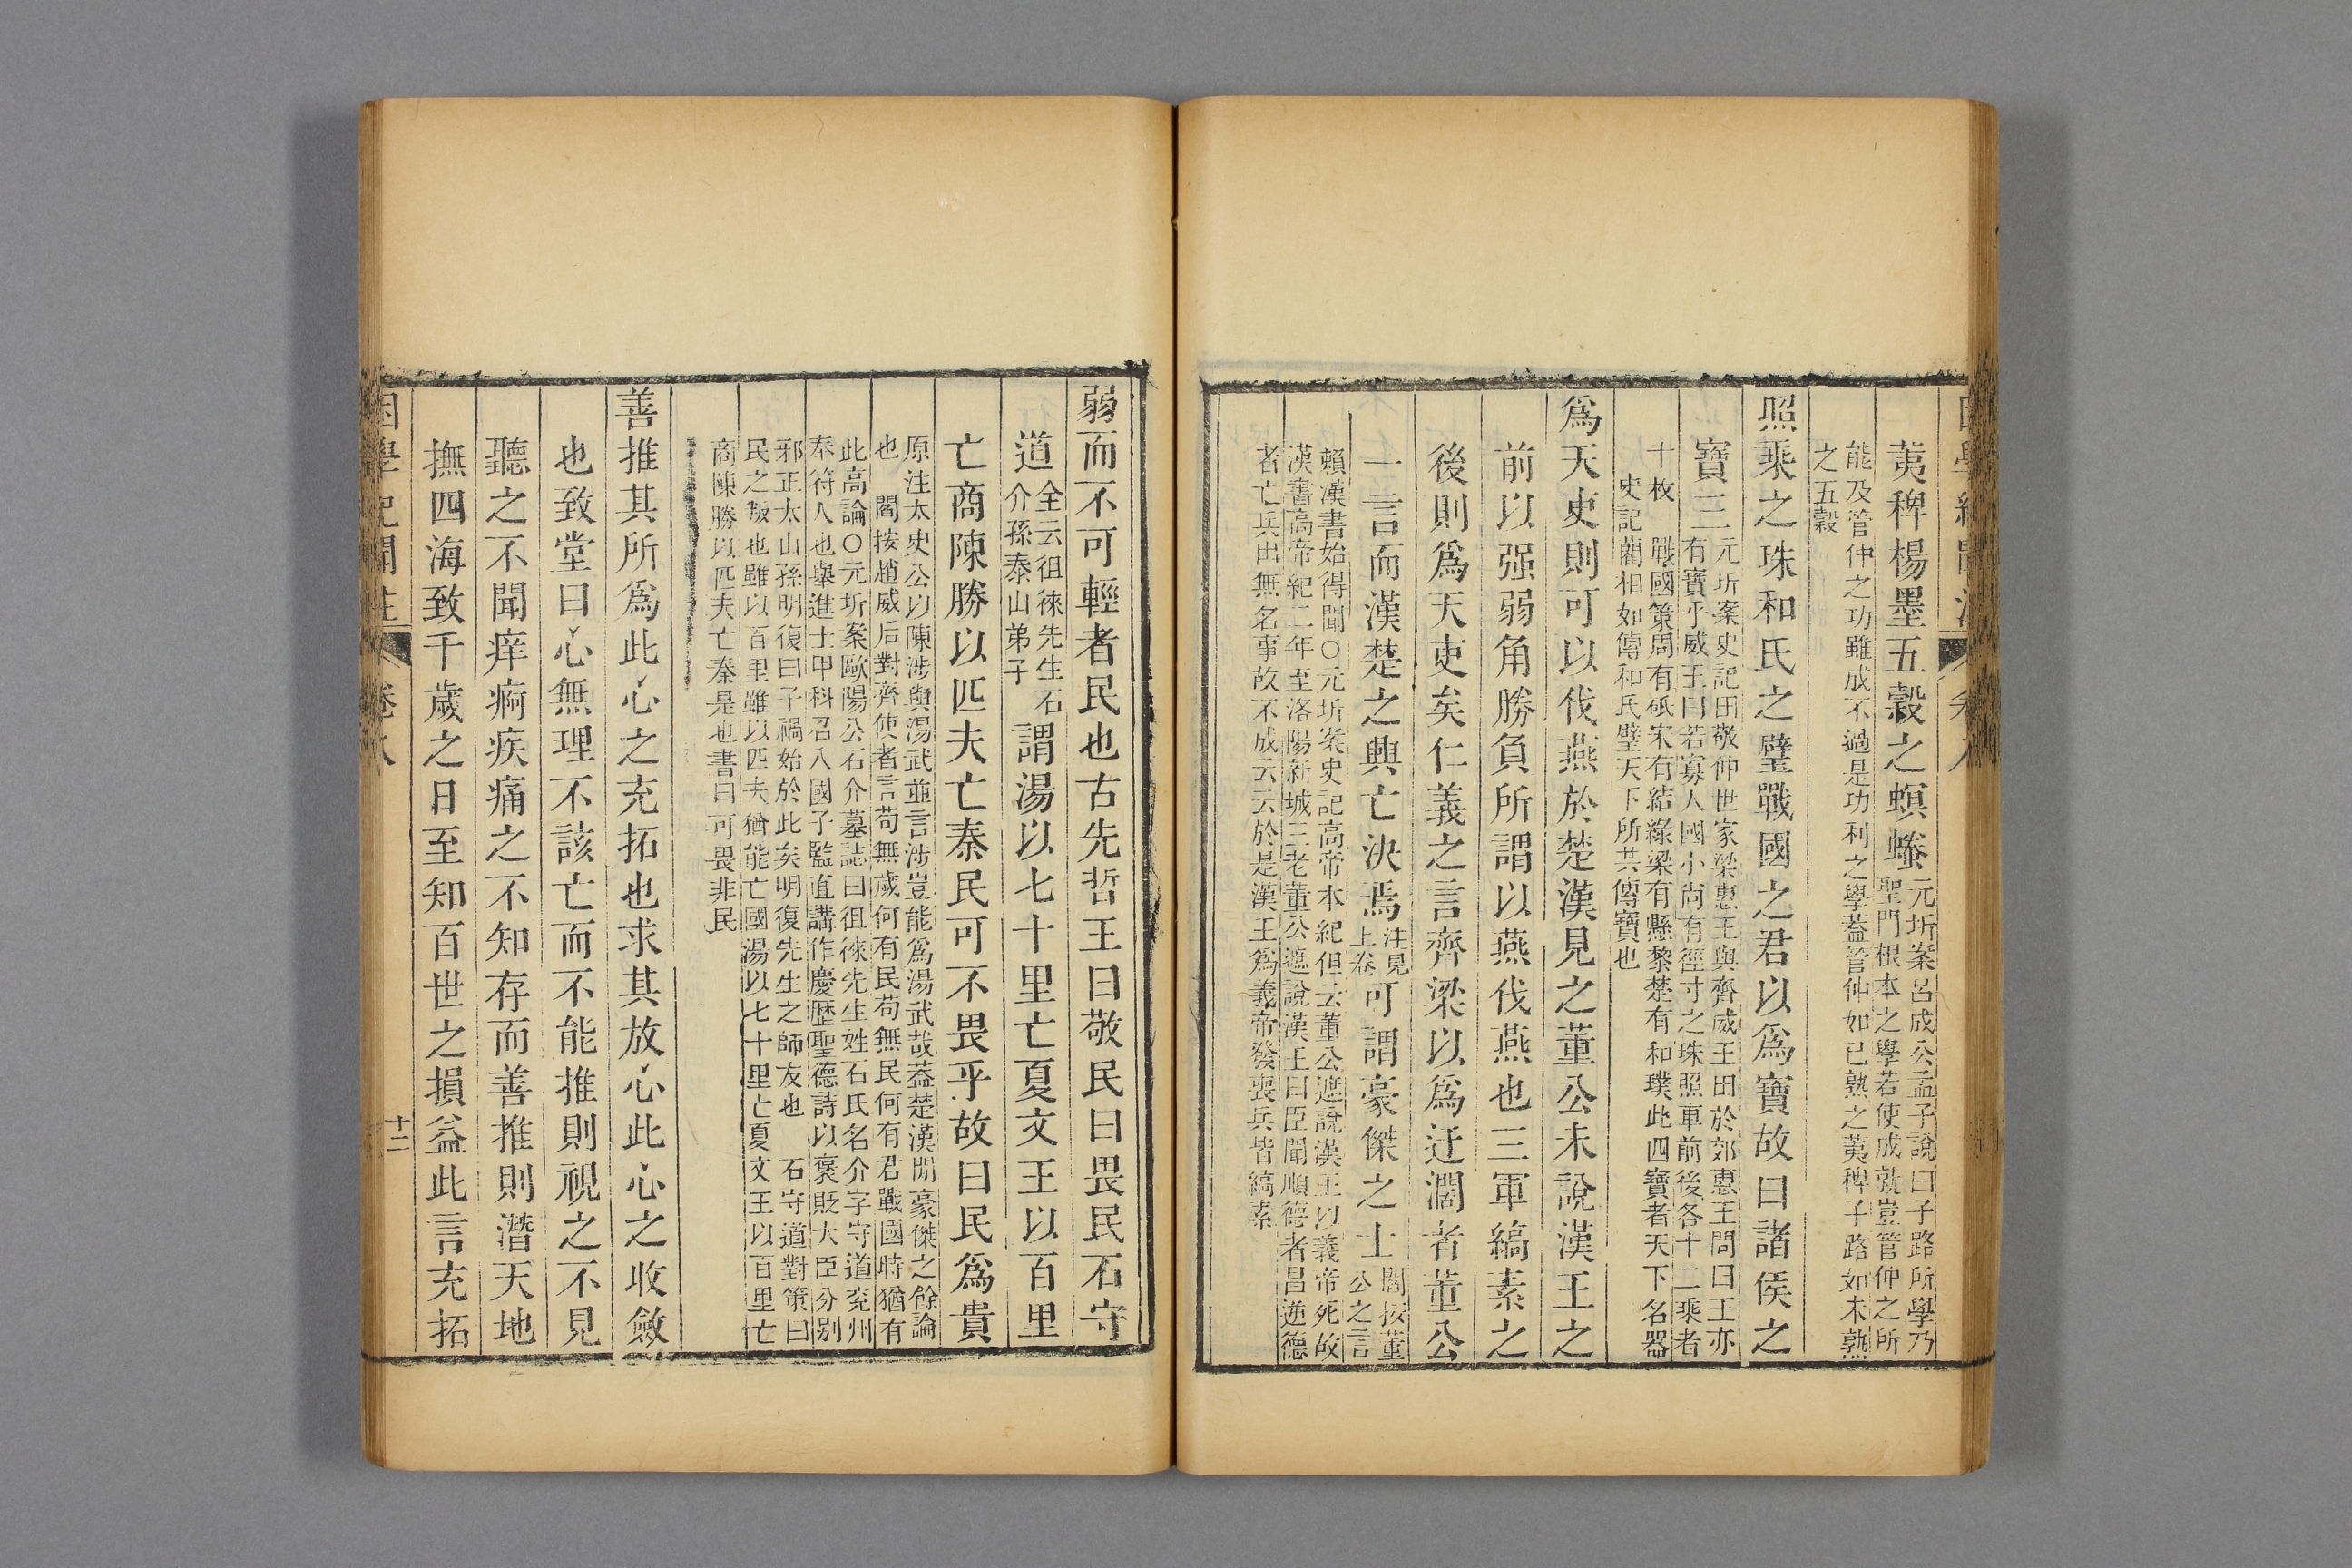 荑稗楊墨五穀之螟螣元圻案呂成公孟子說曰子路所學乃
聖門根本之學若使成就豈管仲之所
能及管仲之功雖成不過是功利之學蓋管仲如已熟之荑稗子路如未熟
之五穀
照乘之珠和氏之璧戰國之君以爲寶故曰諸侯之
寶三元圻案史記田敬仲世家梁惠王與齊威王田於郊惠王問曰王亦
有寶乎威王曰若寡人國小尚有徑寸之珠照車前後各十二乘者
十枚 戰國策周有砥宋有結綠梁有懸黎楚有和璞此四寶者天下名器
史記藺相如傳和氏璧天下所共傳寶也
爲天吏則可以伐燕於楚漢見之董公未說漢王之
前以强弱角勝負所謂以燕伐燕也三軍縞素之
後則爲天吏矣仁義之言齊梁以爲迂濶者董公
一言而漢楚之興亡決焉注見上卷可謂豪傑之士閻按董公之言
賴漢書始得聞○元圻案史記高帝本紀但云董公遮說漢王以義帝死故
漢書高帝紀二年至洛陽新城三老董公遮說漢王曰臣聞順德者昌逆德
者亡兵出無名事故不成云云於是漢王爲義帝發喪兵皆縞素
弱而不可輕者民也古先哲王曰敬民曰畏民石守
道全云徂徠先生石介孫泰山弟子謂湯以七十里亡夏文王以百里
亡商陳勝以匹夫亡秦民可不畏乎故曰民爲貴
原注太史公以陳涉與湯武並言涉豈能爲湯武哉蓋楚漢閒豪傑之餘論
也 閻按趙威后對齊使者言苟無歲何有民苟無民何有君戰國時猶有
此高論○元圻案歐陽公石介墓誌曰徂徠先生姓石氏名介字守道兖州
奉符人也舉進士甲科召入國子監直講作慶歷聖德詩以襃貶大臣分别
邪正太山孫明復曰子禍始於此矣明復先生之師友也 石守道對策曰
民之叛也雖以百里雖以匹夫猶能亡國湯以七十里亡夏文王以百里亡
商陳勝以匹夫亡秦是也書曰可畏非民
善推其所爲此心之充拓也求其放心此心之收斂
也致堂曰心無理不該亡而不能推則視之不見
聽之不聞痒痾疾痛之不知存而善推則潛天地
撫四海致千歲之日至知百世之損益此言充拓
困學紀聞注 卷八 十二